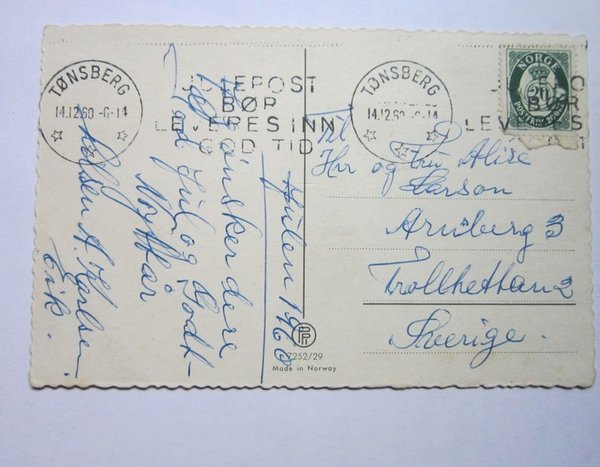 TØNSBERG
14.12.60 -6-14
JULEPOST
BØR
LEVERES INN
GOD TID
TØNSBERG
14.12.60 -6-14
NORGE
20
BØR
LEVERES
Julen 1960
Vi ønsker dere
God Jul og Godt
Nyttår
Hilsen A Karlsen
Eik.
Til
Hrr og Fru Alise
Larson
Aruberg 3
Trollhettan 2
Sverige.
7252/29
Made in Norway